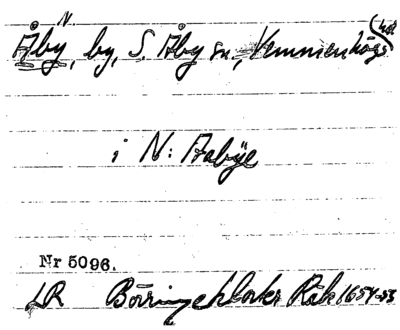 N.
Åby, by, S. Åby sn, Vemmenhögs hd
i N: Aabÿe
Nr 5096.
LR Börringekloster Räk 1654-53